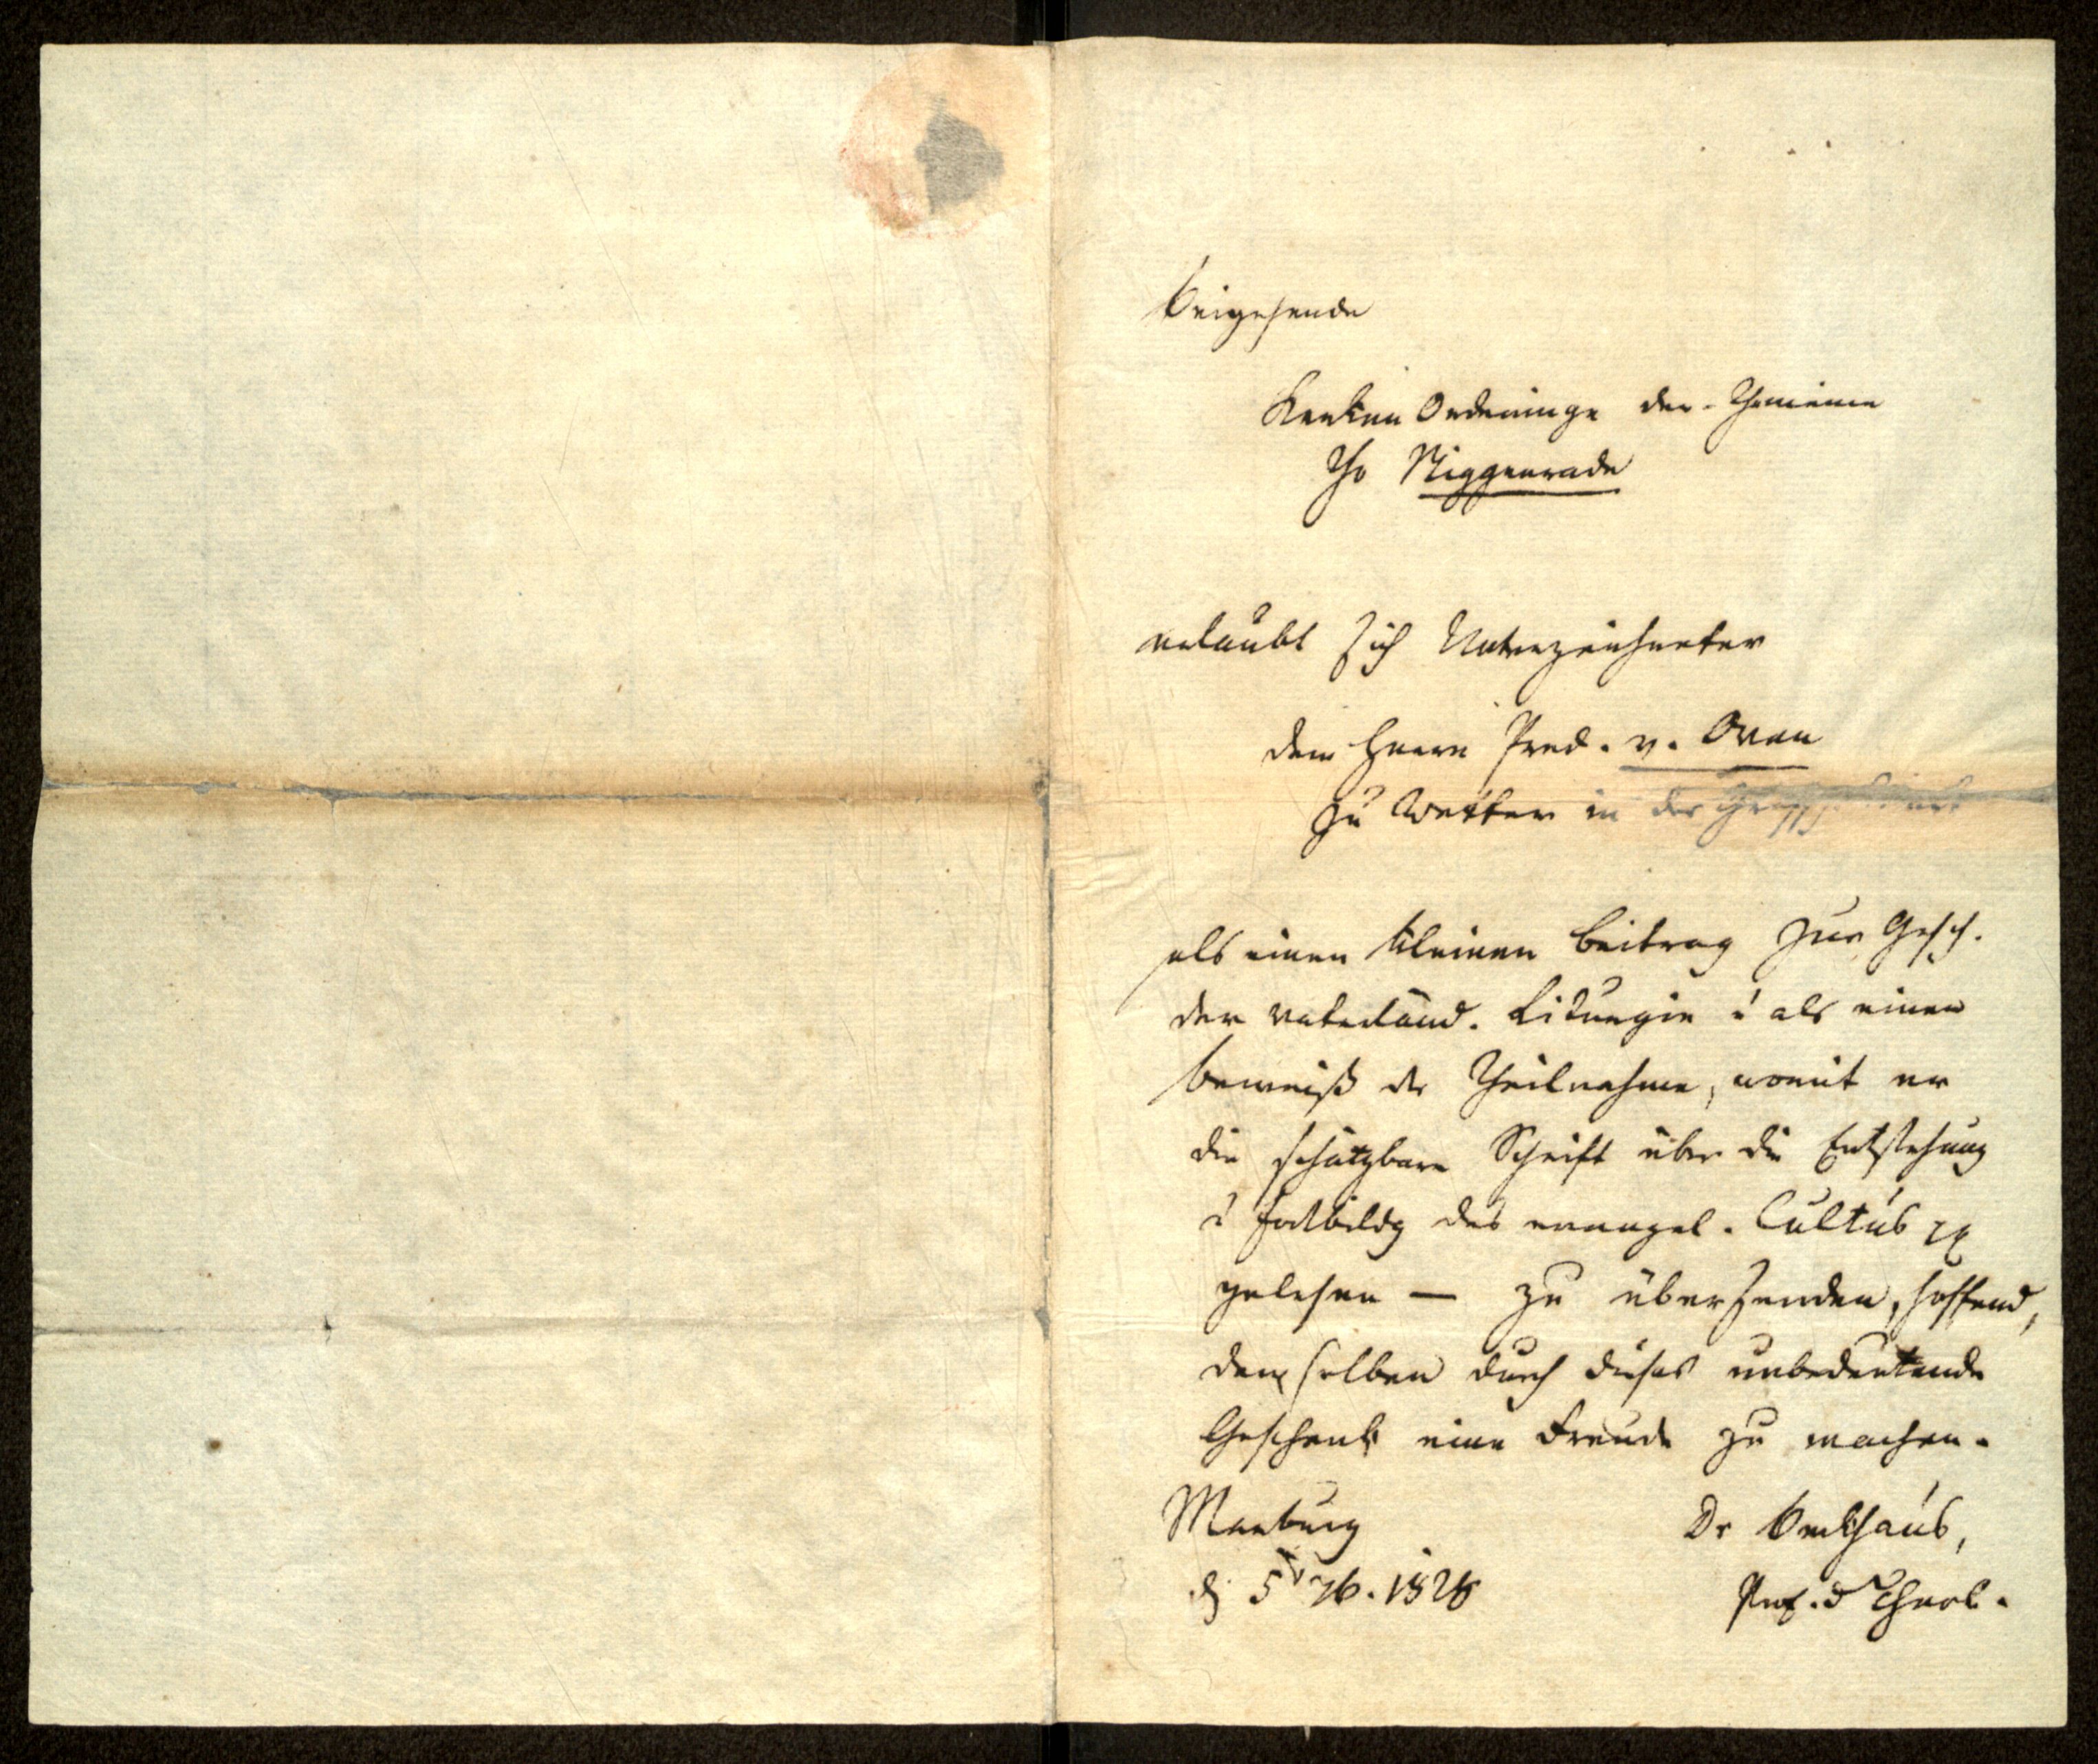 Beigehende
Kerken Ordeninge der Gemeine
Tho Niggenrade
erlaubt sich Unterzeichneter
dem Herrn Pred. v. Oven
zu Wetter in der Grafschaft
als einen kleinen Beitrag zur Gesch.
der vaterländ. Liturgie u als einen
Beweiß der Theilnahme, womit er
die schätzbare Schrift über die Entstehung
u Fortbildg des evangel. Cultus
gelesen — zu übersenden, hoffend,
demselben durch dieses unbedeutende
Geschenk eine Freude zu machen.
Marburg
Dr Beckhaus,
d 5 1828
Prof. d Theol.